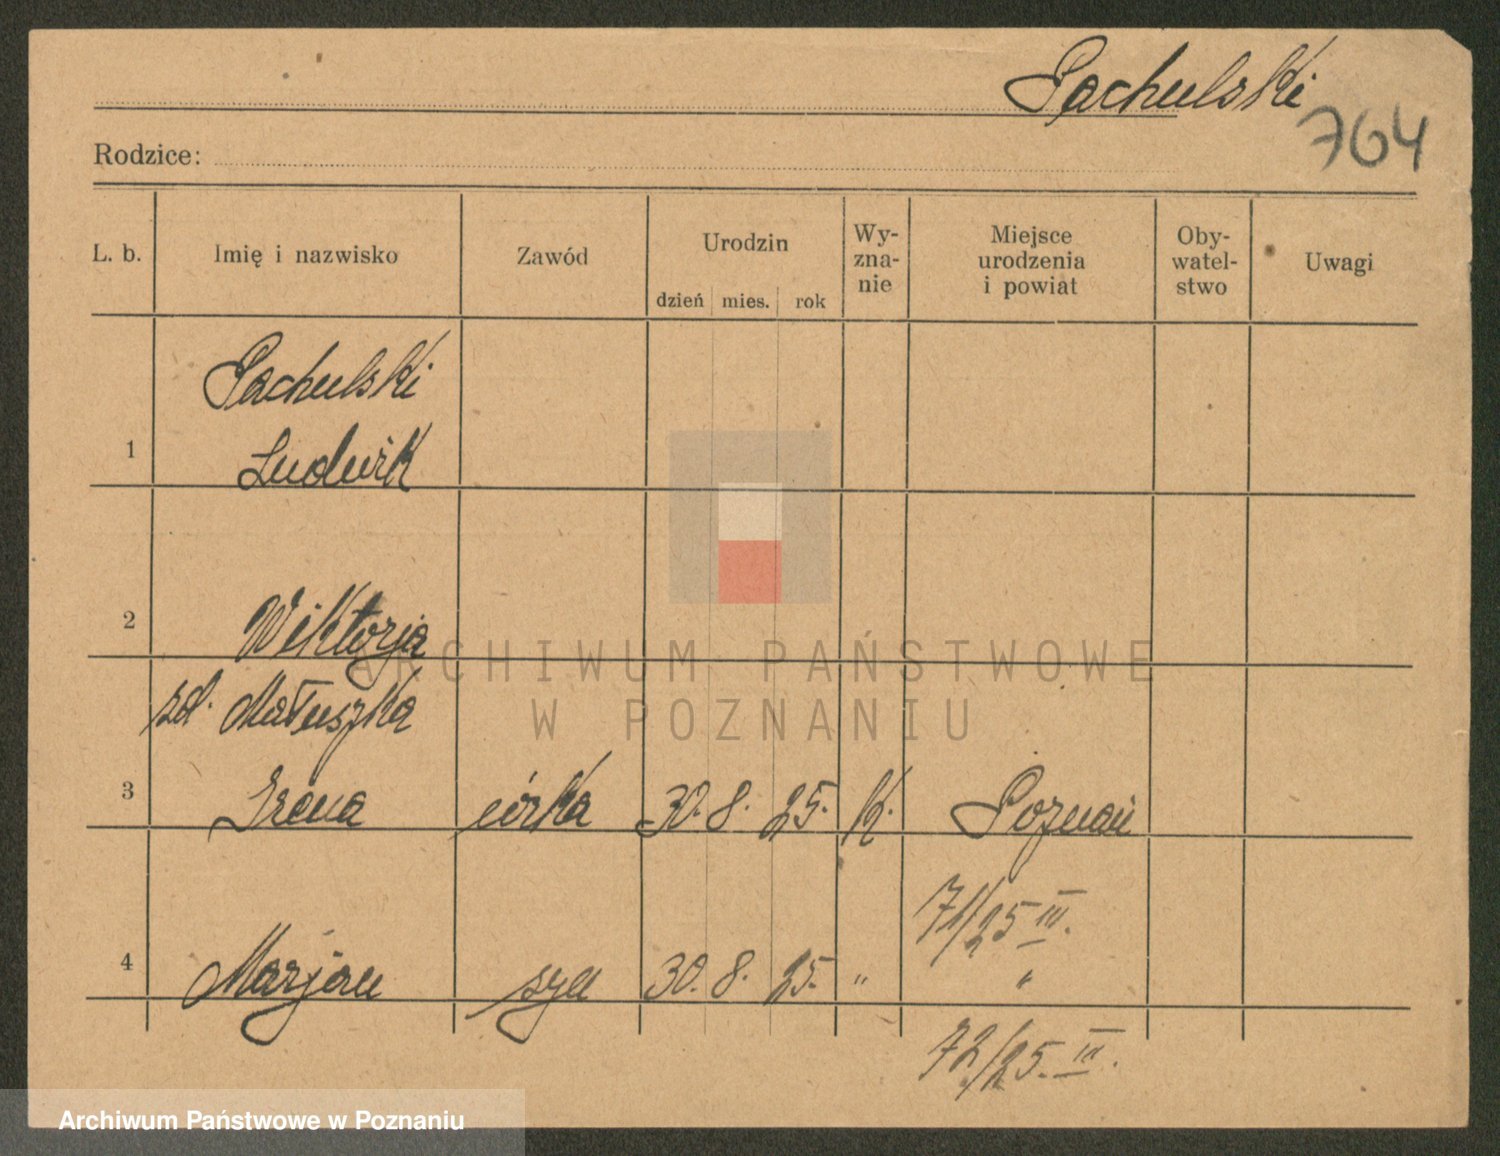 Pachulski
764
Rodzice:
L. b. Imię i nazwisko Zawód Urodzin dzień mies. rok Wy-zna-nie Miejsce urodzenia i powiat Oby-watel-stwo Uwagi
Pachulski
1 Ludwik
2 Wiktorja
zd. Matuszka
3 Irena córka 30. 8. 25. K. Poznań
71/25 III.
4 Marjan syn 30. 8. 25. " "
72/25. III.
ARCHIWUM PAŃSTWOWE
W POZNANIU
Archiwum Państwowe w Poznaniu